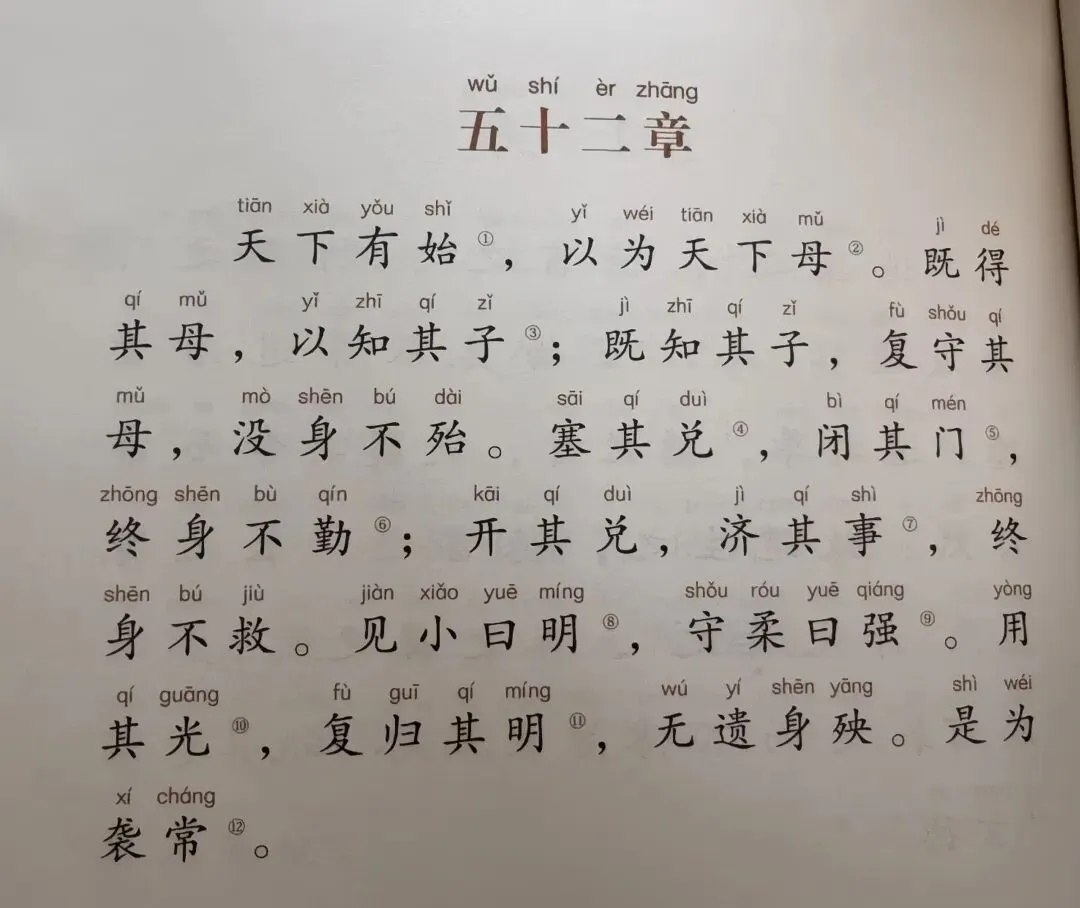 wǔ shí èr zhāng
五十二章
tiān xià yǒu shǐ yǐ wéi tiān xià mǔ jì dé
天下有始①，以为天下母②。既得
qí mǔ yǐ zhī qí zǐ jì zhī qí zǐ fù shǒu qí
其母，以知其子③；既知其子，复守其
mǔ mò shēn bú dài sāi qí duì bì qí mén
母，没身不殆。塞其兑④，闭其门⑤，
zhōng shēn bù qín kāi qí duì jì qí shì zhōng
终身不勤⑥；开其兑，济其事⑦，终
shēn bú jiù jiàn xiǎo yuē míng shǒu róu yuē qiáng yòng
身不救。见小曰明⑧，守柔曰强⑨。用
qí guāng fù guī qí míng wú yí shēn yāng shì wéi
其光⑩，复归其明⑪，无遗身殃。是为
xí cháng
袭常⑫。